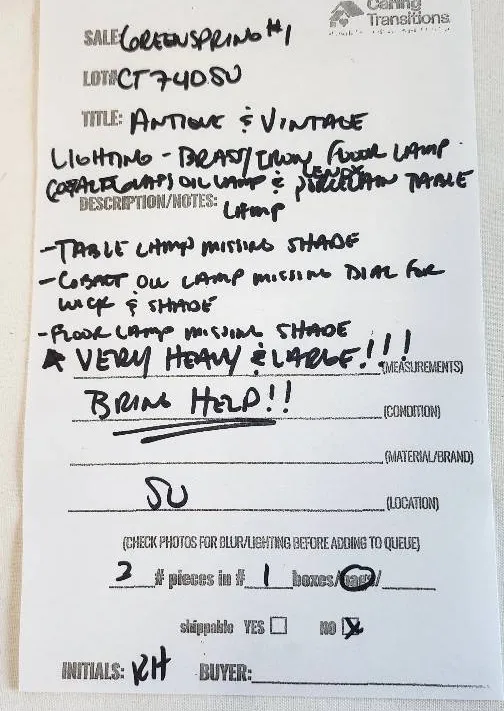 Caring
Transitions
SALE: GREENSPRING #1
LOT# CT740SU
TITLE: ANTIQUE & VINTAGE
LIGHTING - BRASS/IRON FLOOR LAMP
COBALT OIL LAMP & LENOX PORCELAIN TABLE
DESCRIPTION/NOTES: LAMP
- TABLE LAMP MISSING SHADE
- COBALT OIL LAMP MISSING DIAL FOR
WICK & SHADE
- FLOOR LAMP MISSING SHADE
VERY HEAVY & LARGE!!! (MEASUREMENTS)
BRING HELP!! (CONDITION)
(MATERIAL/BRAND)
SU (LOCATION)
(CHECK PHOTOS FOR BLUR/LIGHTING BEFORE ADDING TO QUEUE)
# pieces in # 1 boxes/bags/
shippable YES NO X
INITIALS: BUYER: